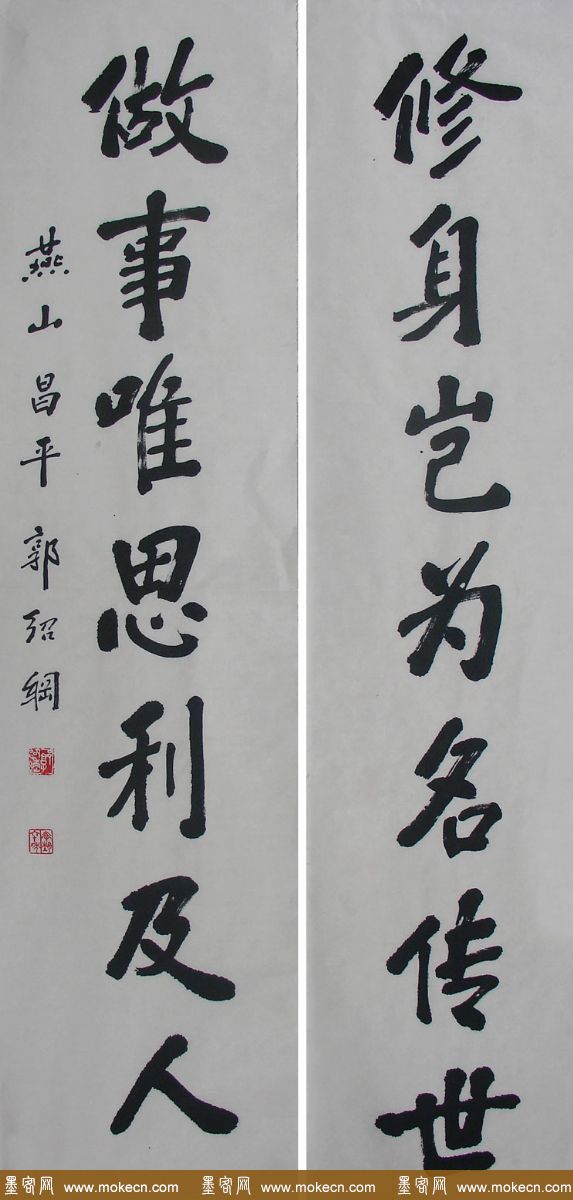 修身岂为名传世
做事唯思利及人
燕山昌平郭绍纲
墨客网 www.mokecn.com 墨客网 www.mokecn.com 墨客网 www.mokecn.com 墨客网